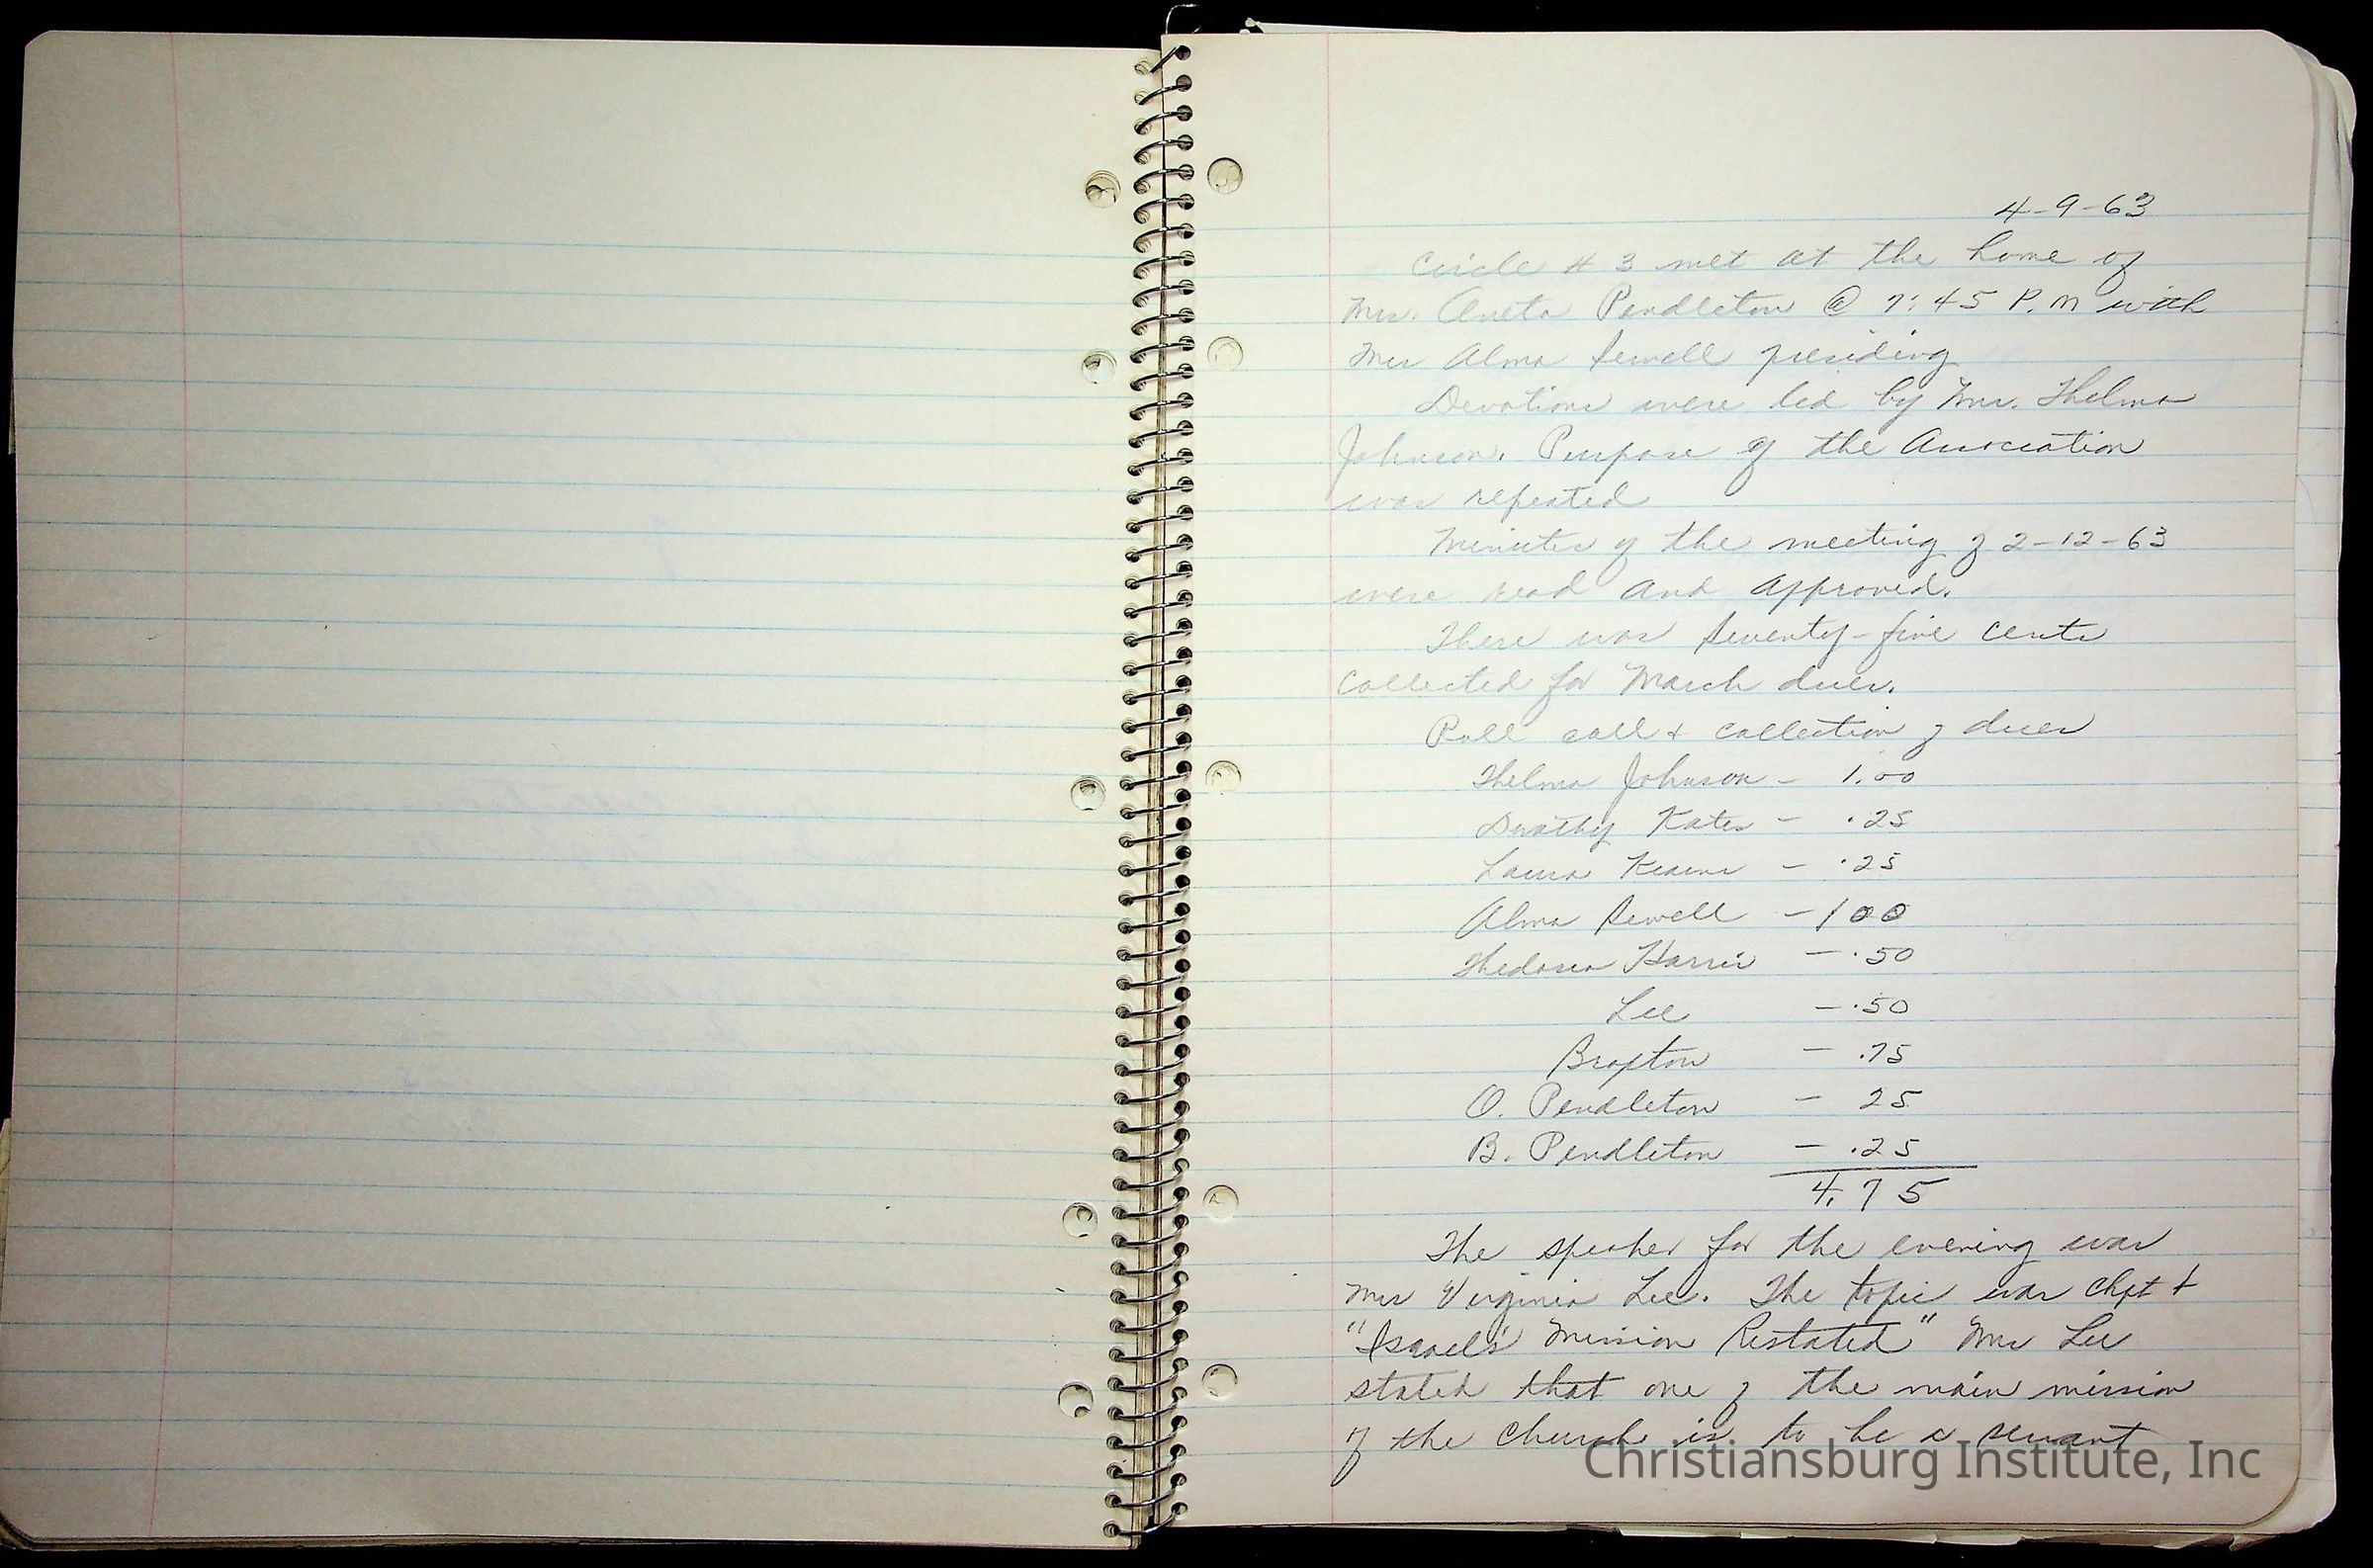 4-9-63
Circle # 3 met at the home of
Mrs. Oneta Pendleton @ 7:45 P.M with
Mrs Alma Sewell presiding
Devotions were led by Mrs. Thelma
Johnson. Purpose of the Association
was repeated
Minutes of the meeting of 2-12-63
were read and approved.
There was seventy-five cents
collected for March dues.
Roll call & collection of dues
Thelma Johnson - 1.00
Dorothy Kates - .25
Laura - .25
Alma Sewell - 100
Thedosia Harris - .50
Lee - .50
Braxton - .75
O. Pendleton - 25
B. Pendleton - .25
4.75
The speaker for the evening was
Mrs Virginia Lee. The topic was Chpt
"Israel's Mission Restated" Mrs Lee
stated that one of the main mission
of the Church is to be a servant
Christiansburg Institute, Inc